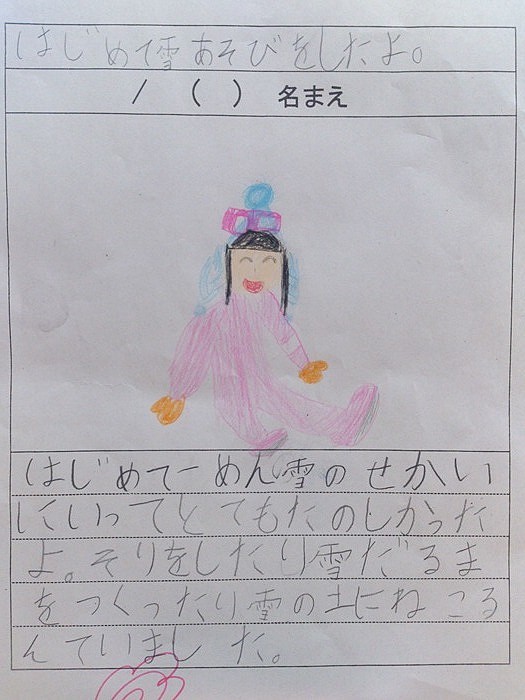 はじめて雪あそびをしたよ。
/ ( ) 名まえ
はじめて一めん雪のせかい
にいってとてもたのしかった
よ。そりをしたり雪だるま
をつくったり雪の上にねころ
んていました。